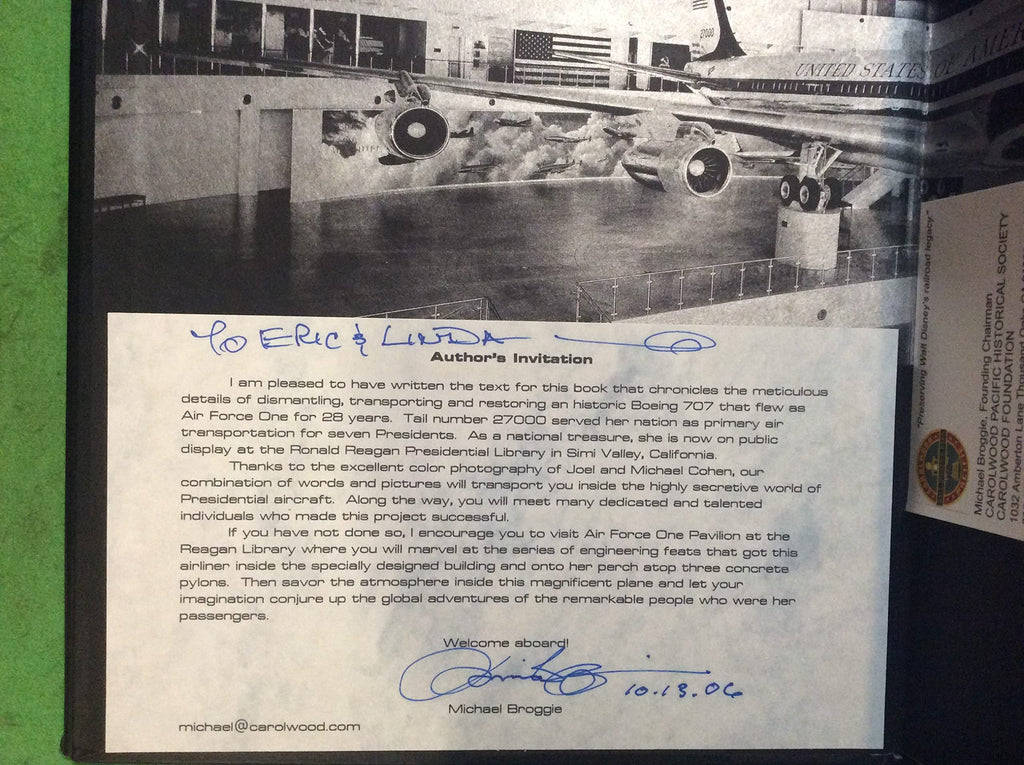 27000
UNITED STATES OF AMER
TO ERIC & LINDA
Author's Invitation
I am pleased to have written the text for this book that chronicles the meticulous
details of dismantling, transporting and restoring an historic Boeing 707 that flew as
Air Force One for 28 years. Tail number 27000 served her nation as primary air
transportation for seven Presidents. As a national treasure, she is now on public
display at the Ronald Reagan Presidential Library in Simi Valley, California.
Thanks to the excellent color photography of Joel and Michael Cohen, our
combination of words and pictures will transport you inside the highly secretive world of
Presidential aircraft. Along the way, you will meet many dedicated and talented
individuals who made this project successful.
If you have not done so, I encourage you to visit Air Force One Pavilion at the
Reagan Library where you will marvel at the series of engineering feats that got this
airliner inside the specially designed building and onto her perch atop three concrete
pylons. Then savor the atmosphere inside this magnificent plane and let your
imagination conjure up the global adventures of the remarkable people who were her
passengers.
Welcome aboard!
10.13.06
Michael Broggie
michael@carolwood.com
"Preserving Walt Disney's railroad legacy."
Michael Broggie, Founding Chairman
CAROLWOOD PACIFIC HISTORICAL SOCIETY
CAROLWOOD FOUNDATION
1032 Amberton Lane